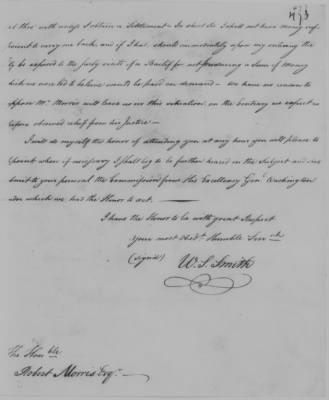 at this until I obtain a Settlement. In short Sir I shall not have money suf-
ficient to carry me back, and if I had should immediately upon my entering the
City be exposed to the purly visits of a Bailiff for not producing a Sum of Money
which we were led to believe wou'd be paid on demand — We have no reason to
suppose Mr. Morris will leave us in this situation, on the contrary we expect as
before observed relief from his Justice —
I will do myself the honor of attending you at any hour you will please to
appoint when if necessary I shall beg to be further heard on the Subject and sub-
mit to your perusal the Commission from his Excellency Genl. Washington
under which we had the Honor to act. —
I have the Honor to be with great Respect
Your most Obedt. Humble Servt.
(signed) W. S. Smith
The Honble.
Robert Morris Esqr. —